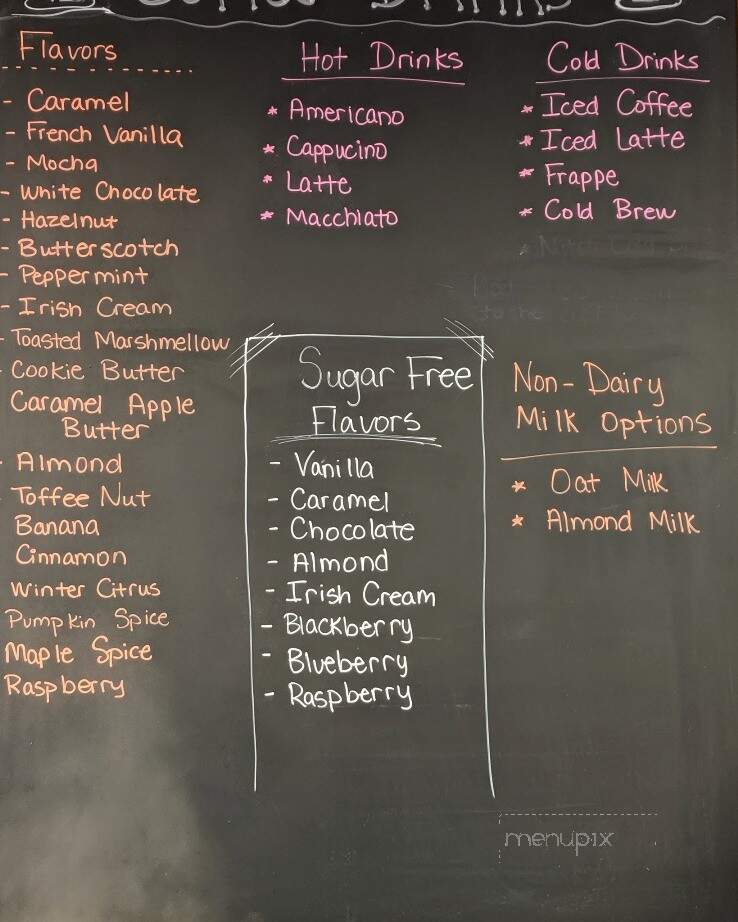 Flavors
- Caramel
- French Vanilla
- Mocha
- White Chocolate
- Hazelnut
- Butterscotch
- Peppermint
- Irish Cream
- Toasted Marshmellow
- Cookie Butter
Caramel Apple
Butter
- Almond
- Toffee Nut
Banana
Cinnamon
Winter Citrus
Pumpkin Spice
Maple Spice
Raspberry
Hot Drinks
* Americano
* Cappucino
* Latte
* Macchiato
Cold Drinks
* Iced Coffee
* Iced Latte
* Frappe
* Cold Brew
Sugar Free
Flavors
- Vanilla
- Caramel
- Chocolate
- Almond
- Irish Cream
- Blackberry
- Blueberry
- Raspberry
Non-Dairy
Milk Options
* Oat Milk
* Almond Milk
menupix